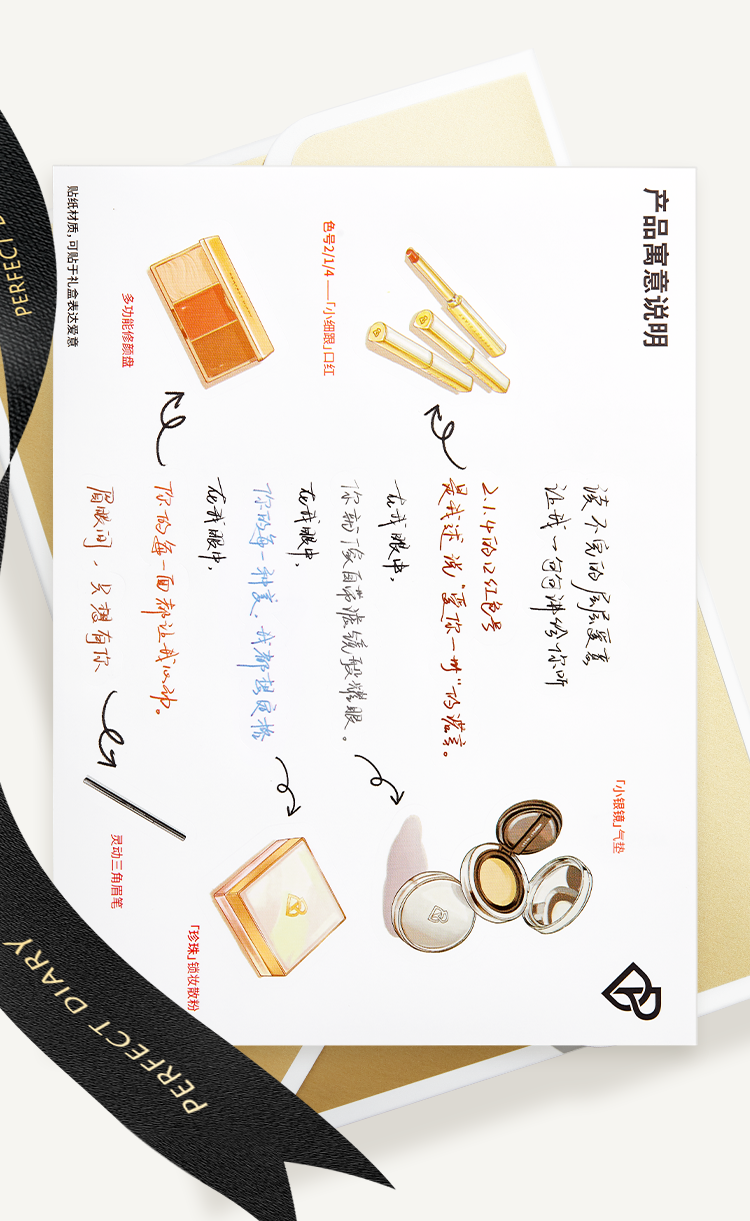 产品寓意说明
读不完的层层爱意
让我一句句讲给你听
2.1.4的口红色号
是我述说"爱你一世"的箴言。
在我眼中,
你都门像自带滤镜般耀眼。
在我眼中,
你的每一种美,我都想定格
在我眼中,
你的每一面都让我心动。
眉眼间,只想有你
色号2/1/4——「小细跟」口红
多功能修颜盘
「小银镜」气垫
「珍珠」锁妆散粉
灵动三角眉笔
贴纸材质,可贴于礼盒表达爱意
PERFECT D
PERFECT DIARY